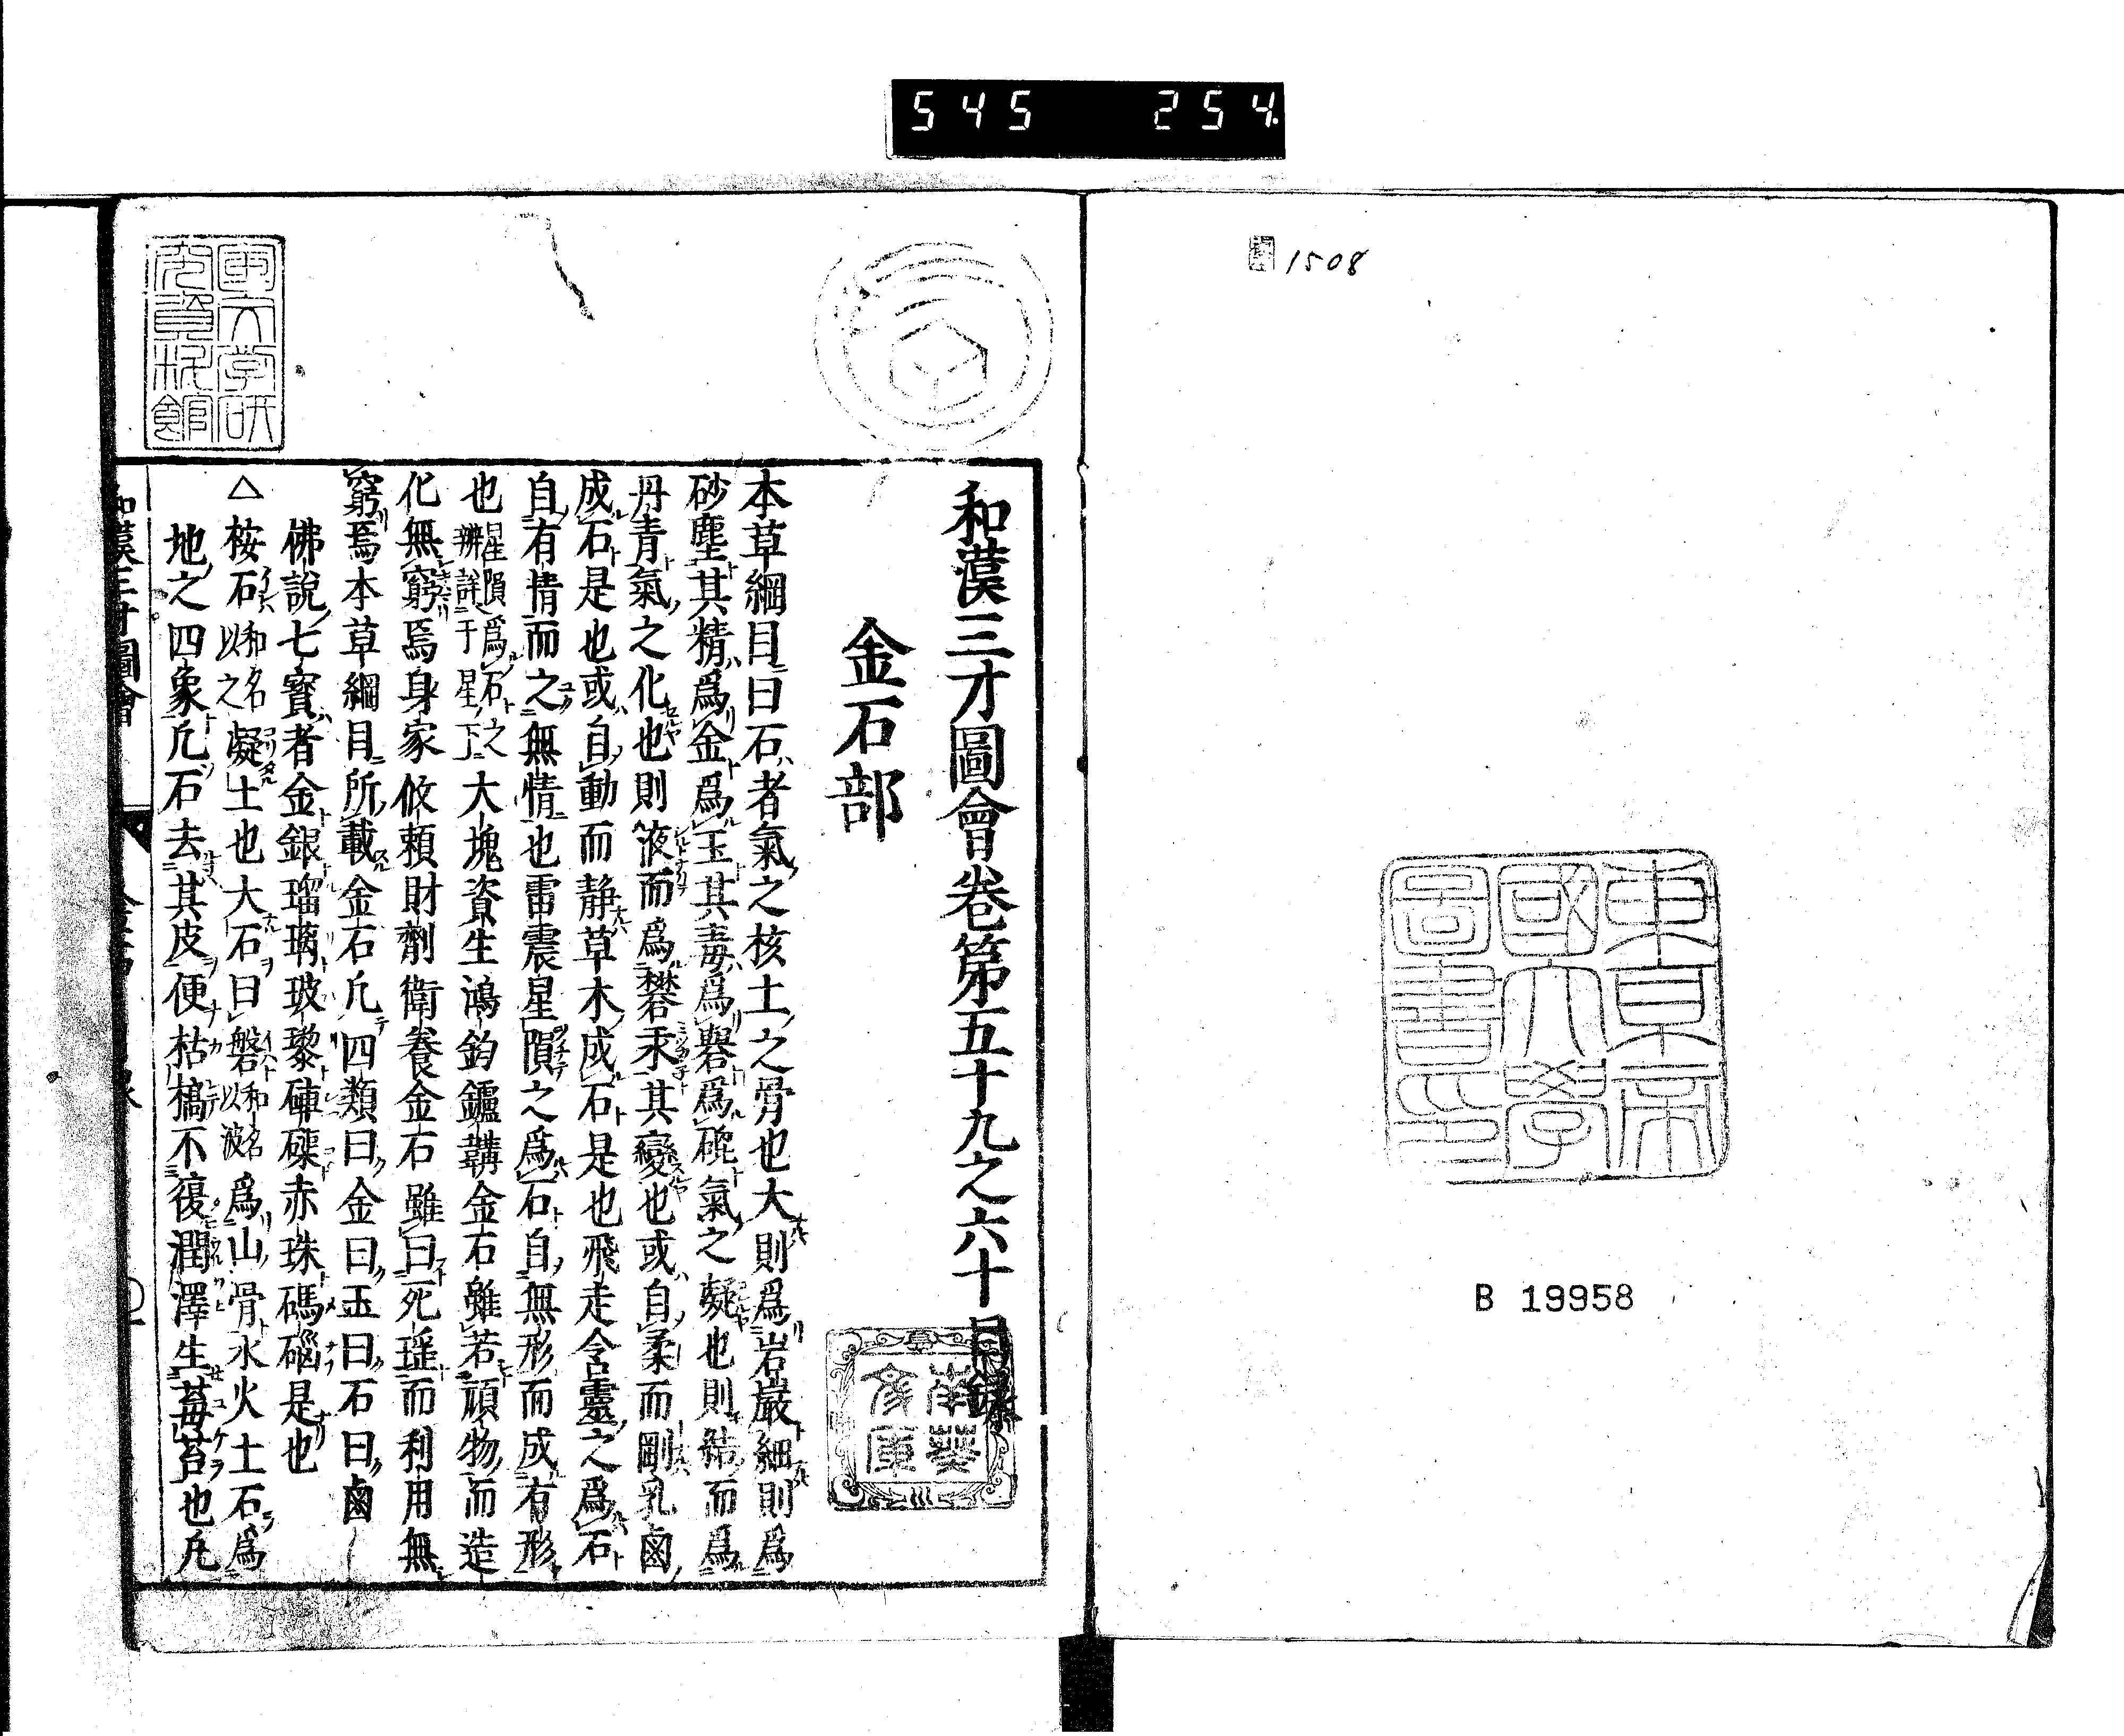 545 254
1508
東京帝
國大學
圖書印
B 19958
南葵
文庫
國文学研
究資料館
和漢三才圖會卷第五十九之六十目録
金石部
本草綱目曰石者氣之核土之骨也大則爲岩巖細則爲
砂塵其精爲金爲玉其毒爲礜爲砒氣之凝也則結而爲
丹青氣之化也則液而爲礬汞其變也或自柔而剛乳鹵
成石是也或自動而静草木成石是也飛走含靈之爲石
自有情而之無情也雷震星隕之爲石自無形而成有形
也星隕爲石之辨詳于星下大塊資生鴻鈞鑪鞴金石雖若頑物而造
化無窮焉身家攸賴財劑衛養金石雖曰死瑶而利用無
窮焉本草綱目所載金石凢四類曰金曰玉曰石曰鹵
佛說七寳者金銀瑠璃玻瓈硨磲赤珠碼碯是也
△桉石和名以之凝土也大石曰磐和名以波爲山骨水火土石爲
地之四象凢石去其皮便枯槁不復潤澤生苺苔也凢
和漢三才圖會